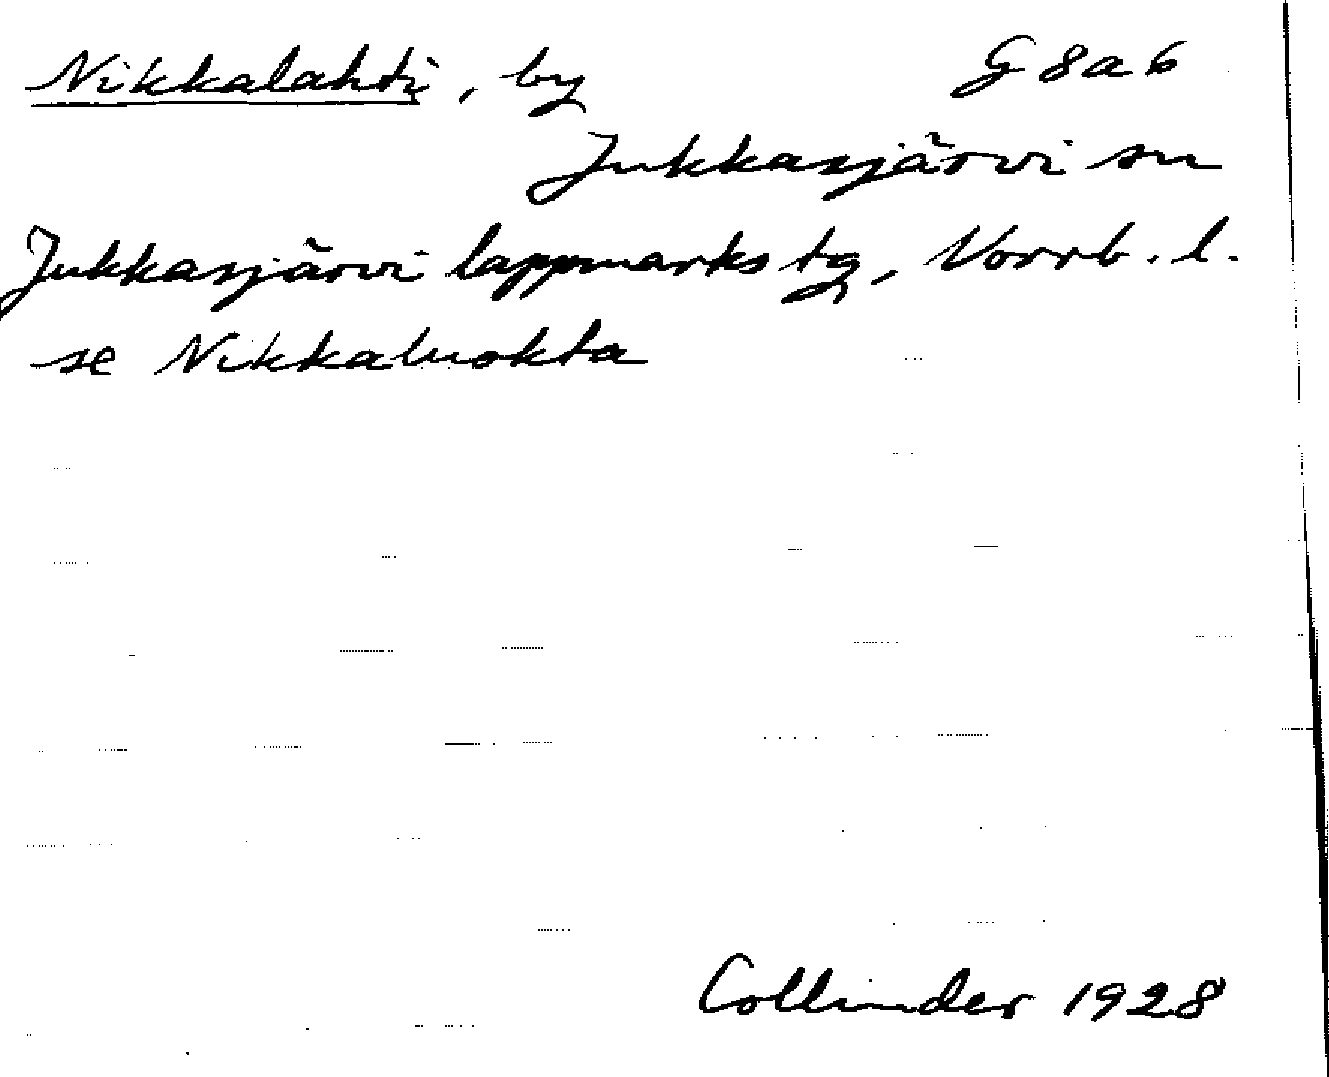 Nikkalahti, by G 8 a 6
Jukkasjärvi sn
Jukkasjärvi lappmarks tg, Norrb. l.
se Nikkaluokta
Collinder 1928